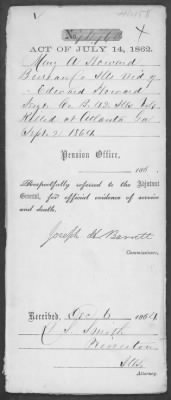 ACT OF JULY 14, 1862.
Mary A Howard
Ills Wid of
Edward Howard
Co. B. 42 Ills Vols
Killed at Atlanta Ga
Sept. 2 1864
Pension Office,
186
Respectfully referred to the Adjutant
General, for official evidence of service
and death.
Joseph H Barrett
Commissioner.
Received, Dec 6 1864
S. Smith
Princeton
Ills.
Attorney.